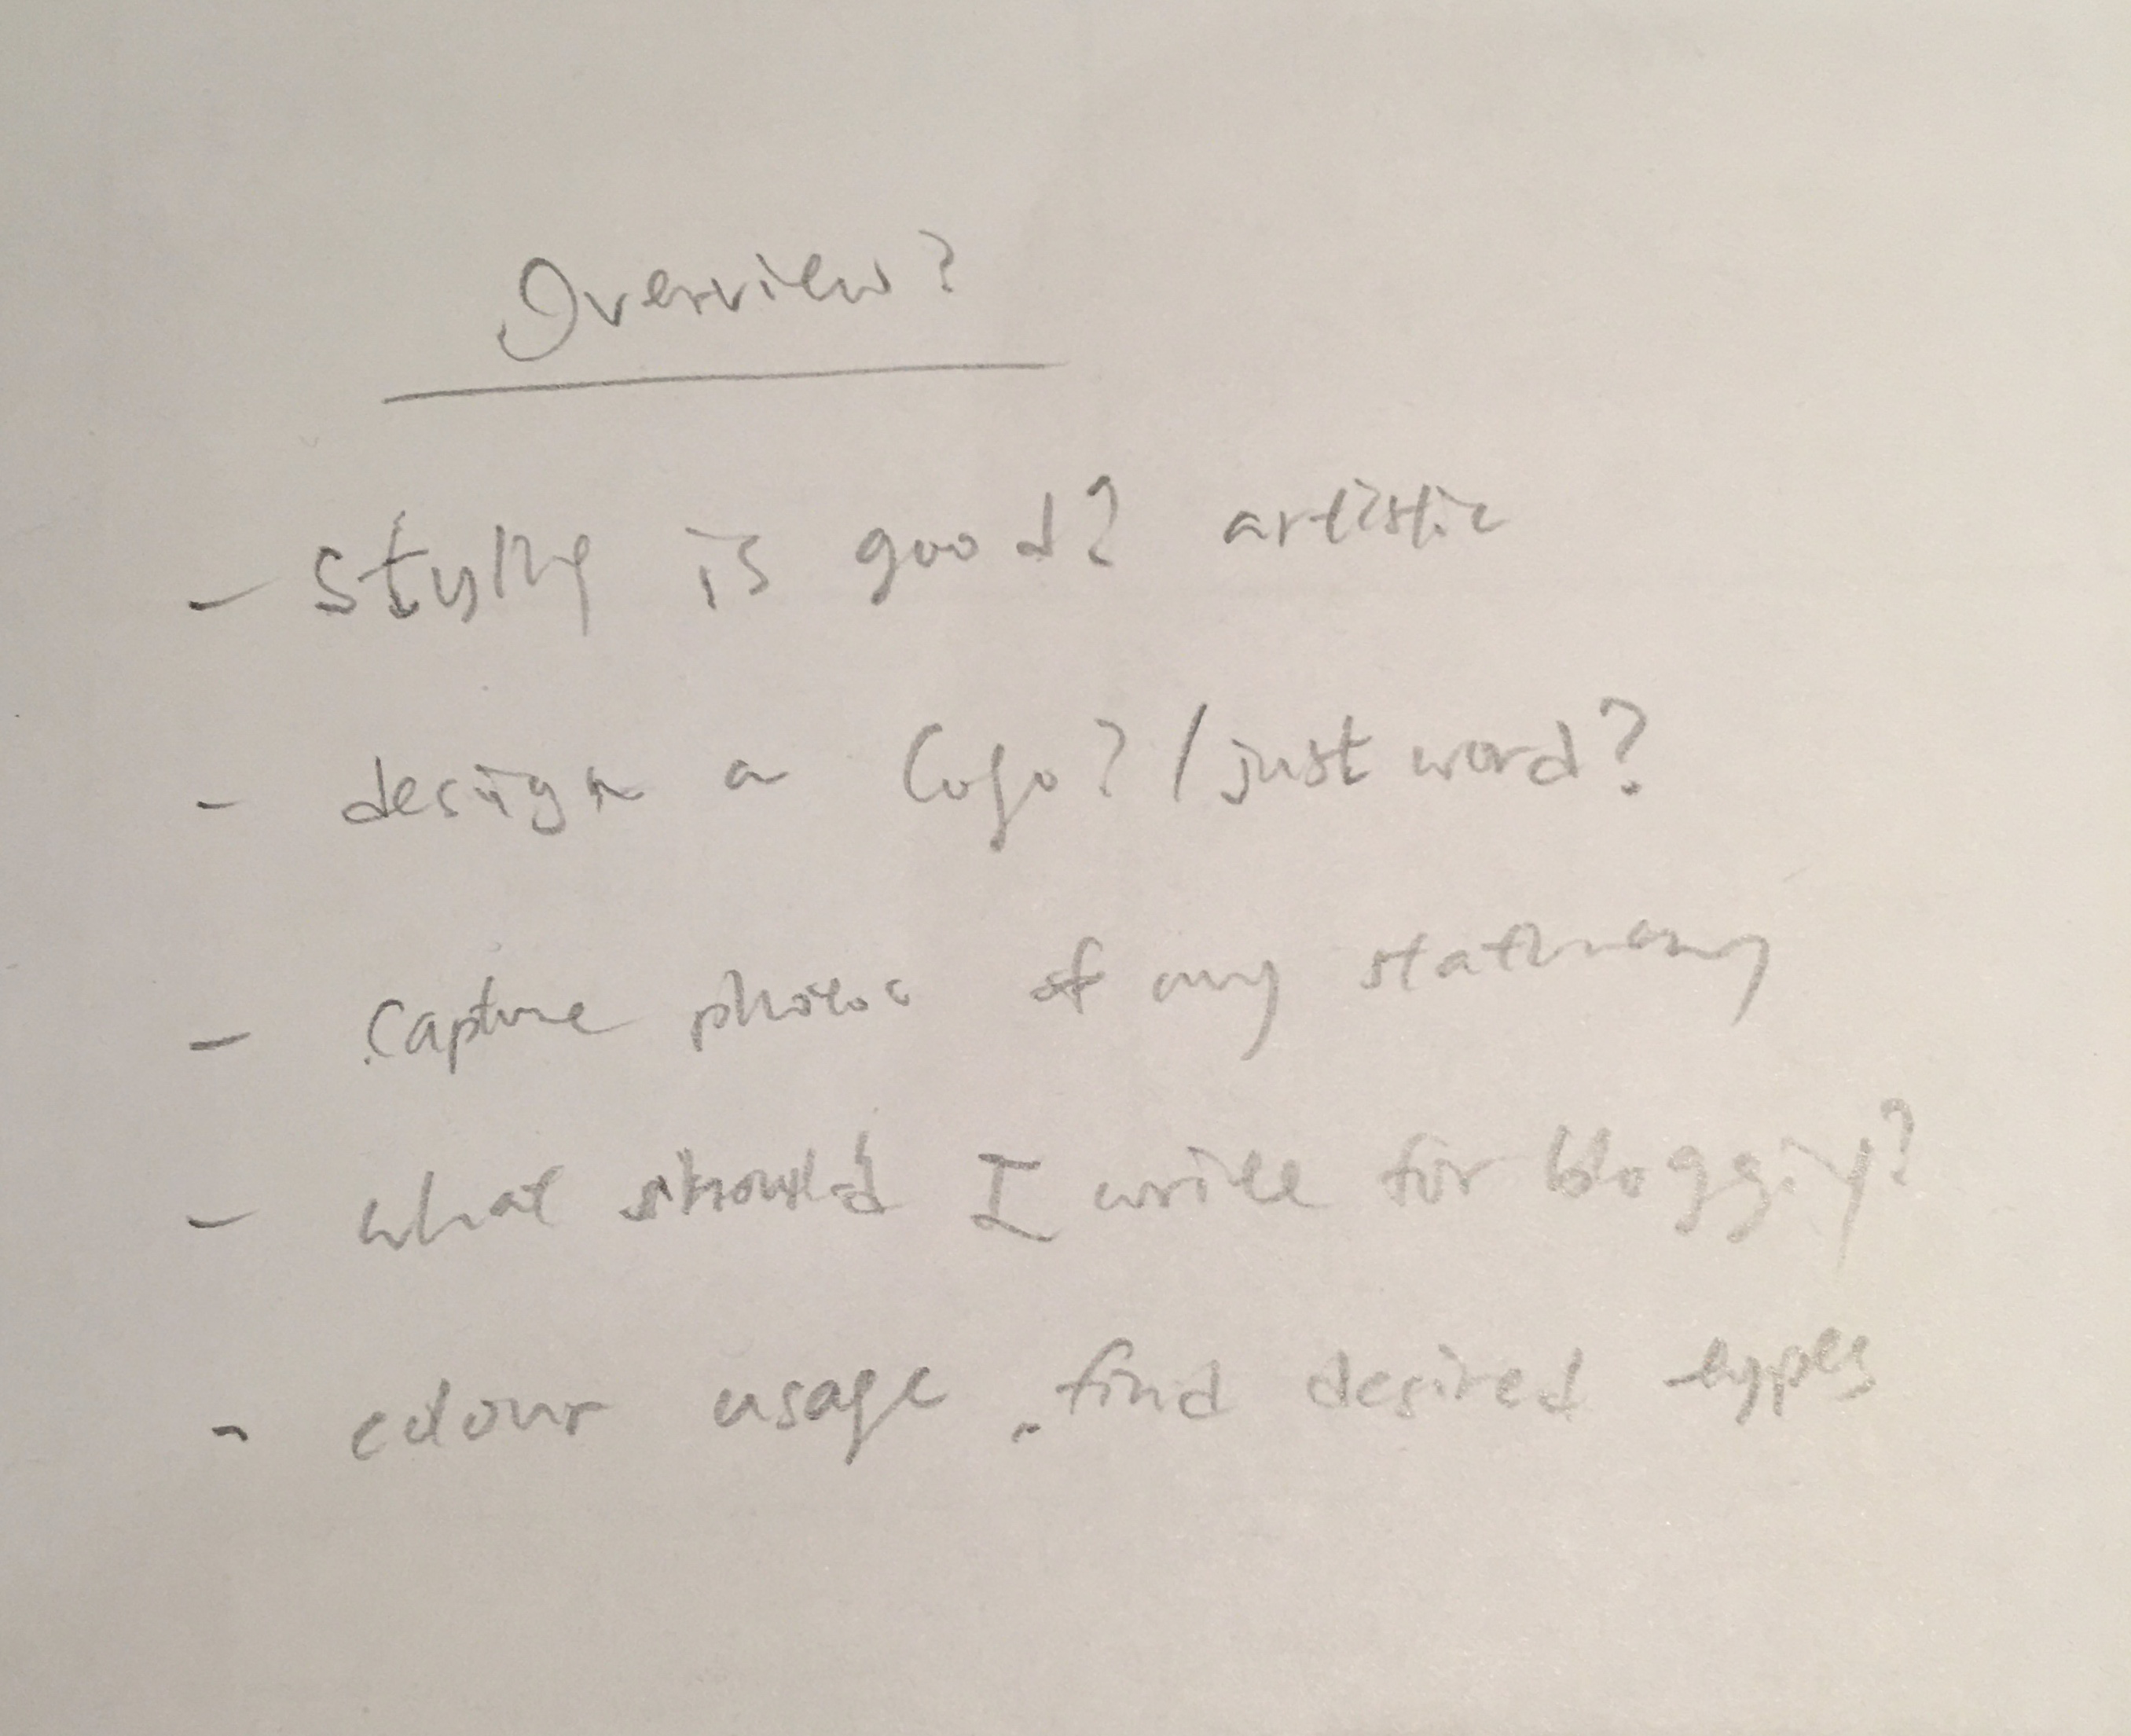 Overview?
- Styling is good? artistic
- design a logo? / just word?
- Capture photos of my stationary
- what should I write for blogging?
- colour usage . find desired types